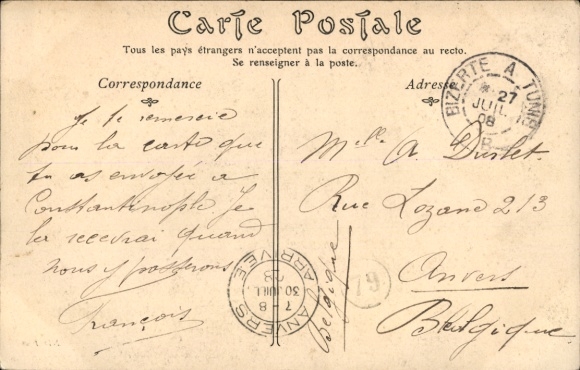 Carte Postale
Tous les pays étrangers n'acceptent pas la correspondance au recto.
Se renseigner à la poste.
Correspondance
Je te remercie
pour la carte que
tu as envoyée à
Constantinople je
la recevrai quand
nous y passerons
François
Adresse
BIZERTE A TUNIS
27
JUIL
08
B
Melle A.
Rue Lozane 213
Anvers
Belgique
Belgique
ANVERS
7-8
30 JUILL.
08
ARRIVÉE
79